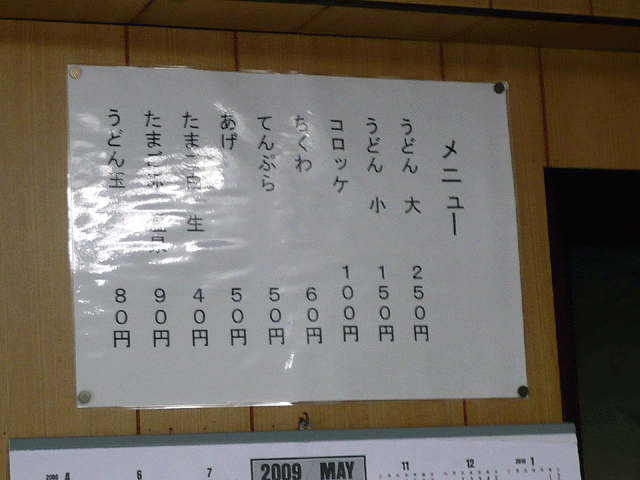 メニュー
うどん 大 250円
うどん 小 150円
コロッケ 100円
ちくわ 60円
てんぷら 50円
あげ 50円
たまご 生 40円
たまご 90円
うどん玉 80円
2009 4
6
7
2009 MAY
11
12
2010 1